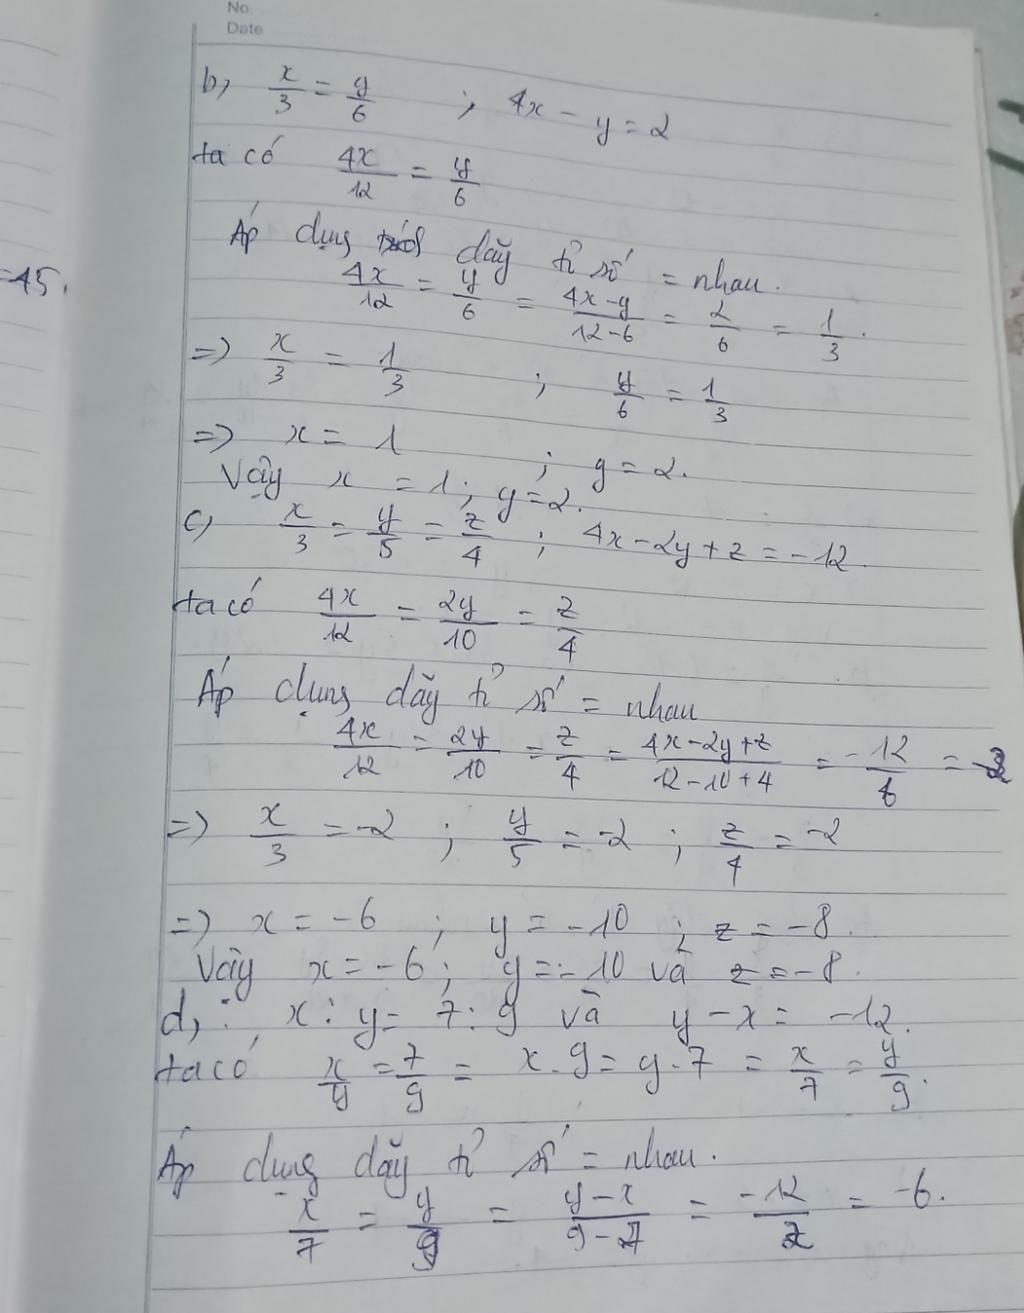 No.
Date
b, x/3 = y/6 ; 4x - y = 2
ta có 4x/12 = y/6
Áp dụng dãy tỉ số = nhau.
=45.
4x/12 = y/6 = 4x-y/12-6 = 2/6 = 1/3.
=> x/3 = 1/3 ; y/6 = 1/3
=> x = 1 ; y = 2.
Vậy x = 1 ; y = 2.
c, x/3 = y/5 = z/4 ; 4x - 2y + z = -12.
ta có 4x/12 = 2y/10 = z/4
Áp dụng dãy tỉ số = nhau
4x/12 = 2y/10 = z/4 = 4x-2y+z/12-10+4 = -12/6 = -2
=> x/3 = -2 ; y/5 = -2 ; z/4 = -2
=> x = -6 ; y = -10 ; z = -8.
Vậy x = -6 ; y = -10 và z = -8.
d, : x : y = 7 : 9 và y - x = -12.
ta có x/y = 7/9 = x . 9 = y . 7 = x/7 = y/9.
Áp dụng dãy tỉ số = nhau.
x/7 = y/9 = y-x/9-7 = -12/2 = -6.